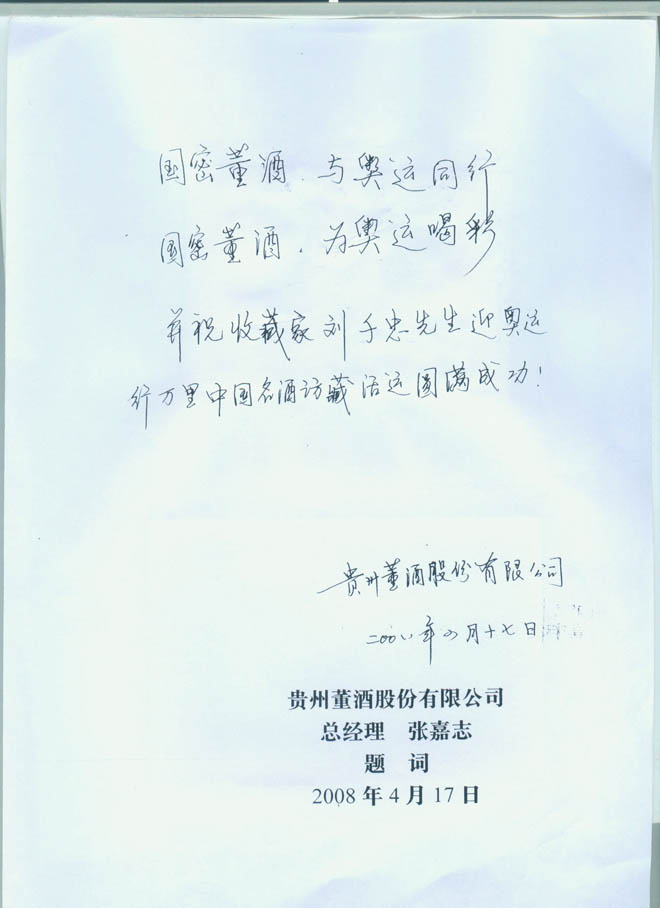 国密董酒.与奥运同行
国密董酒.为奥运喝彩
并祝收藏家刘子忠先生迎奥运
行万里中国名酒访藏活运圆满成功!
贵州董酒股份有限公司
二〇〇八年四月十七日
贵州董酒股份有限公司
总经理 张嘉志
题 词
2008年4月17日